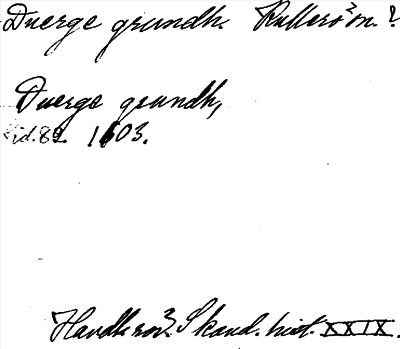 Duerge grundh. Kullerö^2n.?
Duerge grundh,
sid. 82. 1603.
Handl. rör^2. Skand. hist. XXIX.